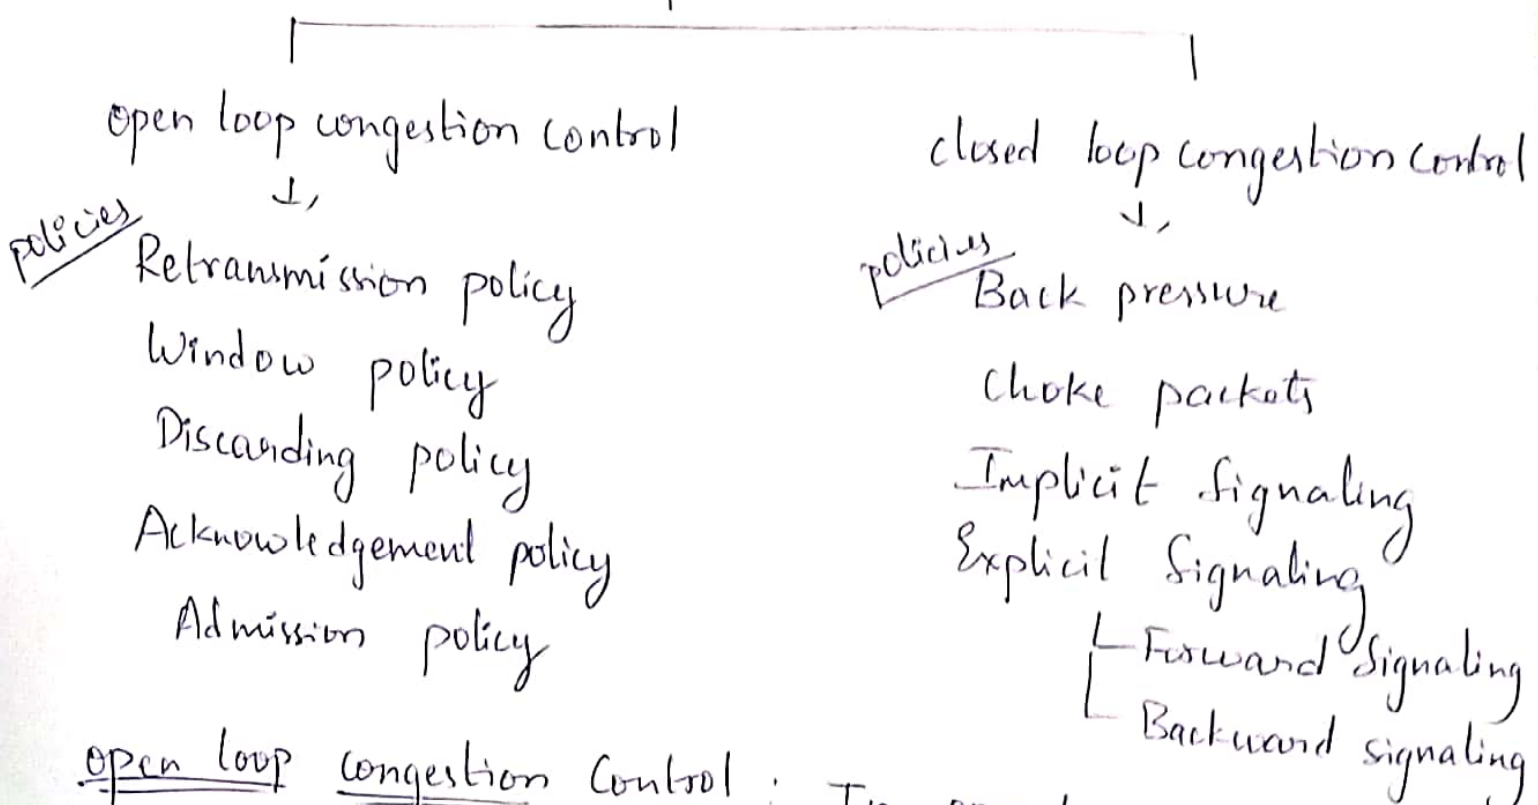 open loop congestion control
policies
Retransmission policy
Window policy
Discarding policy
Acknowledgement policy
Admission policy
closed loop congestion control
policies
Back pressure
choke packets
Implicit signaling
Explicit signaling
Forward signaling
Backward signaling
open loop congestion control :